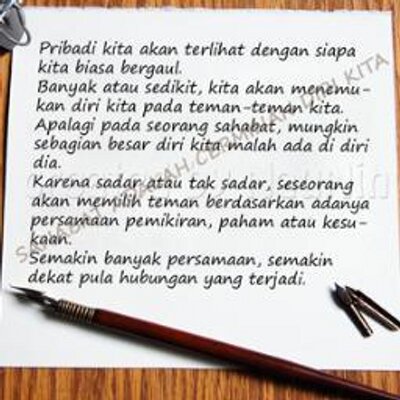 Pribadi kita akan terlihat dengan siapa
kita biasa bergaul.
Banyak atau sedikit, kita akan menemu-
kan diri kita pada teman-teman kita.
Apalagi pada seorang sahabat, mungkin
sebagian besar diri kita malah ada di diri
dia.
Karena sadar atau tak sadar, seseorang
akan memilih teman berdasarkan adanya
persamaan pemikiran, paham atau kesu-
kaan.
Semakin banyak persamaan, semakin
dekat pula hubungan yang terjadi.
SAHABAT ADALAH CERMINAN DIRI KITA